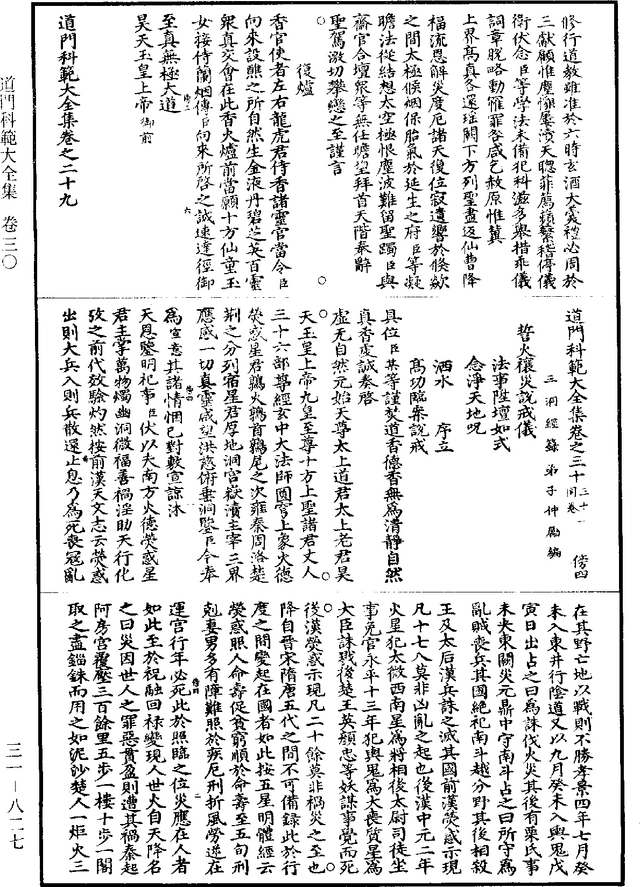 修行道教雖准於六時玄酒大羹禮必周於
三獻顧惟塵穢屢瀆天聰菲薦蘋蘩稽停儀
衛伏念臣等學法未備犯科滋多舉措乖儀
詞章脫略動罹罪咎咸乞赦原惟冀
上界高真各還瑤闕下方列聖盡返仙曹降
福流恩解災度厄諸天復位寂遺響於倏歘
之間太極候烟係胎氣於延生之府臣等凝
瞻法從結想太空極恨塵波難留聖躅臣與
齋官合壇衆等無任瞻望拜首天階奉辭
聖駕激切攀戀之至謹言
復爐
香官使者左右龍虎君侍香諸靈官當令臣
向來設醮之所自然生金液丹碧芝英百靈
衆真交會在此香火爐前當願十方仙童玉
女接侍蘭烟傳臣向來所啓之誠速達徑御
至真無極大道
昊天玉皇上帝御前
道門科範大全集卷之二十九
道門科範大全集 卷三〇
道門科範大全集卷之三十 三十一同卷 傍四
三洞經籙弟子仲勵編
誓火禳災說戒儀
法事陞壇如式
念淨天地呪
洒水 序立
高功臨案說戒
具位臣某等謹焚道香德香無為清靜自然
真香虔誠奏啓
虛无自然元始天尊太上道君太上老君昊
天玉皇上帝九皇至尊十方上聖諸君丈人
三十六部尊經玄中大法師圓穹上象火德
熒惑星君鶉火鶉首鶉尾之次雍秦周洛楚
荆之分列宿星君厚地洞宮嶽瀆主宰三界
應感一切真靈咸望洪慈俯垂洞鑒臣今奉
為宣意其諸情悃已對敷宣諒沐
天恩鑒明祀事臣伏以大南方火德熒惑星
君主掌萬物燭幽洞微福善禍淫助天行化
攷之前代效驗灼然按前漢天文志云熒惑
出則大兵入則兵散還止息乃為死喪冦亂
在其野亡地以戰則不勝孝景四年七月癸
未入東井行陰道又以九月癸未入輿鬼戊
寅日出占之曰為誅伐火災其後有栗氏事
未央東闕災元鼎中守南斗占之曰所守為
亂賊喪兵其國絕祀南斗越分野其後相殺
王及太后漢兵誅之滅其國前漢熒惑示現
凡十七八莫非凶亂之起也後漢中元二年
火星犯太微西南星為將相後太尉司徒坐
事免官永平十三年犯輿鬼為大喪質星為
大臣誅戮後楚王英顏忠等妖謀事覺而死
後漢熒惑示現凡二十餘莫非禍災之至也
降自晉宋隋唐五代之間不可備錄此於行
度之間變起在國者如此按五星明體經云
熒惑照人命壽促貧窮順於命壽至五旬刑
剋妻男多有障難照於疾厄刑折風勞逆在
運宮行年必死此於照臨之位災應在人者
如此至於祝融回祿變現人世火自天降名
之曰災因世人之罪惡貫盈則遭其禍秦起
阿房宮覆壓三百餘里五步一樓十步一閣
取之盡錙銖而用之如泥沙楚人一炬火三
三一-八二七